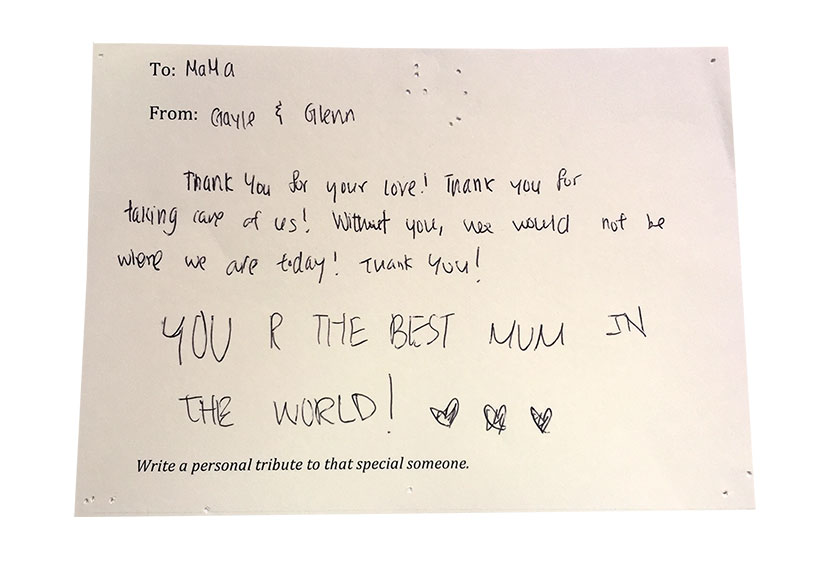 To: MaMa
From: Gayle & Glenn
Thank You for your love! Thank you for
taking care of us! Without you, we would not be
where we are today! Thank You!
YOU R THE BEST MUM IN
THE WORLD!
Write a personal tribute to that special someone.